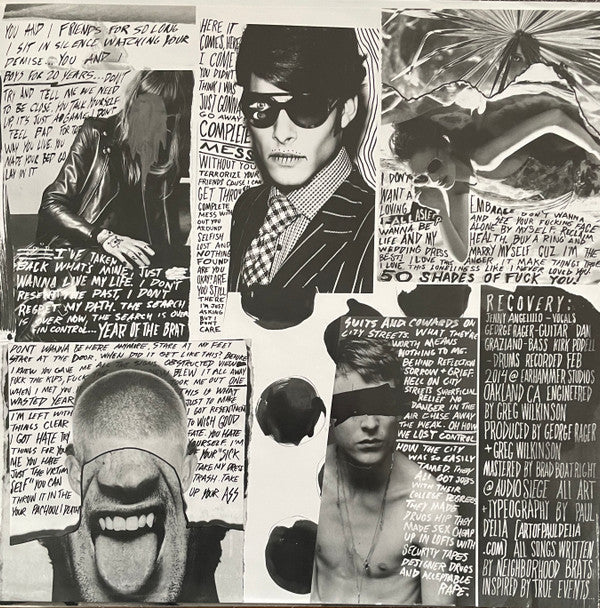 YOU AND I FRIENDS FOR SO LONG
I SIT IN SILENCE WATCHING YOUR
DEMISE... YOU AND I
BOYS FOR 20 YEARS... DON'T
TRY AND TELL ME WE NEED
TO BE CLOSE. YOU TALK YOURSELF
UP, IT'S JUST A GAME. I DON'T
FEEL BAD FOR THE
WAY YOU LIVE. YOU
MADE YOUR BED GO
LAY IN IT
I'VE TAKEN
BACK WHAT'S MINE. JUST
WANNA LOVE MY LIFE. I DON'T
RESENT THE PAST, I DON'T
REGRET MY PATH. THE SEARCH
IS OVER NOW, THE SEARCH IS OVER
IN CONTROL... YEAR OF THE BRAT
HERE IT
COMES, HERE
I COME
YOU DIDN'T
THINK I WAS
JUST GONNA
GO AWAY
COMPLETE
MESS
WITHOUT YOU
TERRORIZE YOUR
FRIENDS CAUSE I CAN
GET THROUGH
COMPLETE
MESS WITH
OUT YOU
AROUND
SELFISH
LOST AND
NOTHING
FOUND
ARE YOU
OKAY? ARE
YOU STILL
THERE
I'M JUST
ASKING
BUT I
DON'T
CARE
I DON'T
WANT A
LOVING
I FALL ASLEEP
WANNA BE
LIFE AND MY
WEDDING DRESS
BEST I LOVE THIS
LOVE THIS LONELINESS LIKE I NEVER LOVED YOU
EMBRACE DON'T WANNA
AND SEE YOUR FUCKING FACE
ALONE BY MYSELF. RECLAIM
HEALTH. BUY A RING AND
MARRY MYSELF CUZ I'M THE
ANGER, IT MAKE THINGS TRUE
50 SHADES OF FUCK YOU!
DON'T WANNA BE HERE ANYMORE, STARE AT MY FEET
STARE AT THE DOOR. WHEN DID IT GET LIKE THIS? BEFORE
I KNEW YOU GAVE ME ALL THE SIGNS OBSTRUCTED VIEW
FUCK THE KIDS, FUCK
WHEN I MET YOU
WASTED YEAR
I'M LEFT WITH
THINGS CLEAR
I GOT HATE
THINGS FOR YOU
ME YOU HATE
JUST THE VICTIM
SELF YOU CAN
THROW IT IN THE
YOUR PACHOULI DEATH
BLEW IT ALL AWAY
ME OUT ONE
THIS IS WHAT
JUST TO MAKE
GOT RESENTMENT
TO WISH GOOD
FATE. YOU HATE
YOURSELF. I'M
YOUR "SICK
TAKE MY DRESS
TRASH. TAKE
UP YOUR ASS
SUITS AND COWARDS ON
CITY STREETS. WHAT THEY'RE
WORTH MEANS
NOTHING TO ME.
BEHIND REFLECTION
SORROW + GRIEF.
HELL ON CITY
STREETS SUPERFICIAL
RELIEF NO
DANGER IN THE
AIR CHASE AWAY
THE WEAK. OH HOW
WE LOST CONTROL
HOW THE CITY
WAS SO EASILY
TAMED. THEY
ALL GOT JOBS
WITH THEIR
COLLEGE DEGREES
THEY MADE
DRUGS HIP THEY
MADE SEX CHEAP
UP IN LOFTS WITH
SECURITY TAPES
DESIGNER DRUGS
AND ACCEPTABLE
RAPE.
RECOVERY:
JENNY ANGELILLO - VOCALS
GEORGE RAGER - GUITAR DAN
GRAZIANO - BASS KIRK PODELL
- DRUMS RECORDED FEB
2014 @ EARHAMMER STUDIOS
OAKLAND CA ENGINEERED
BY GREG WILKINSON
PRODUCED BY GEORGE RAGER
+ GREG WILKINSON
MASTERED BY BRAD BOATRIGHT
@ AUDIOSIEGE ALL ART
+ TYPEOGRAPHY BY PAUL
DELIA [ARTOFPAULDELIA
.COM] ALL SONGS WRITTEN
BY NEIGHBORHOOD BRATS
INSPIRED BY TRUE EVENTS...